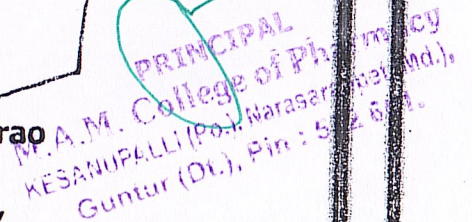 PRINCIPAL
M.A.M. College of Pharmacy
rao
KESANUPALLI (Po.), Narasaraopet (Md.),
Guntur (Dt.), Pin : 522 601.